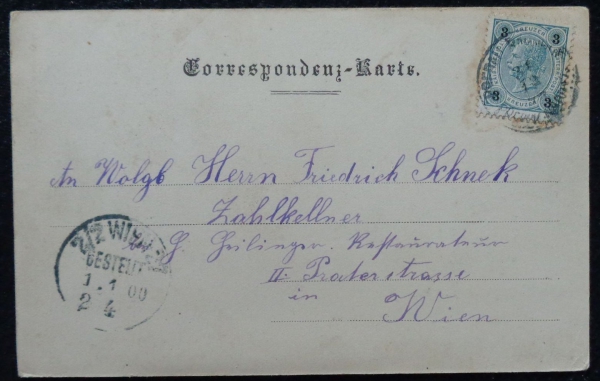 Correspondenz-Karte.
3 3
KREUZER
3 3
KREUZER
An Wolgb Herrn Friedrich Schnek
Zahlkellner
G. Geilinger. Restaurateur
II. Praterstrasse
in
Wien
2/2 WIEN
BESTELLT
1. 1 00
2 4